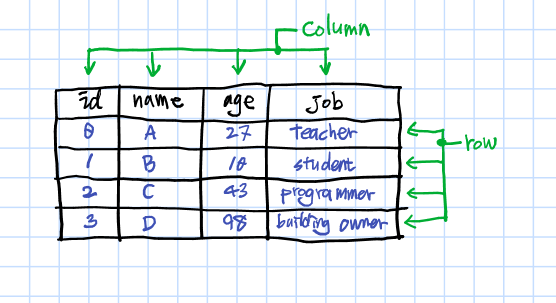 column
id name age job
0 A 27 teacher
row
1 B 10 student
2 C 43 programmer
3 D 98 building owner